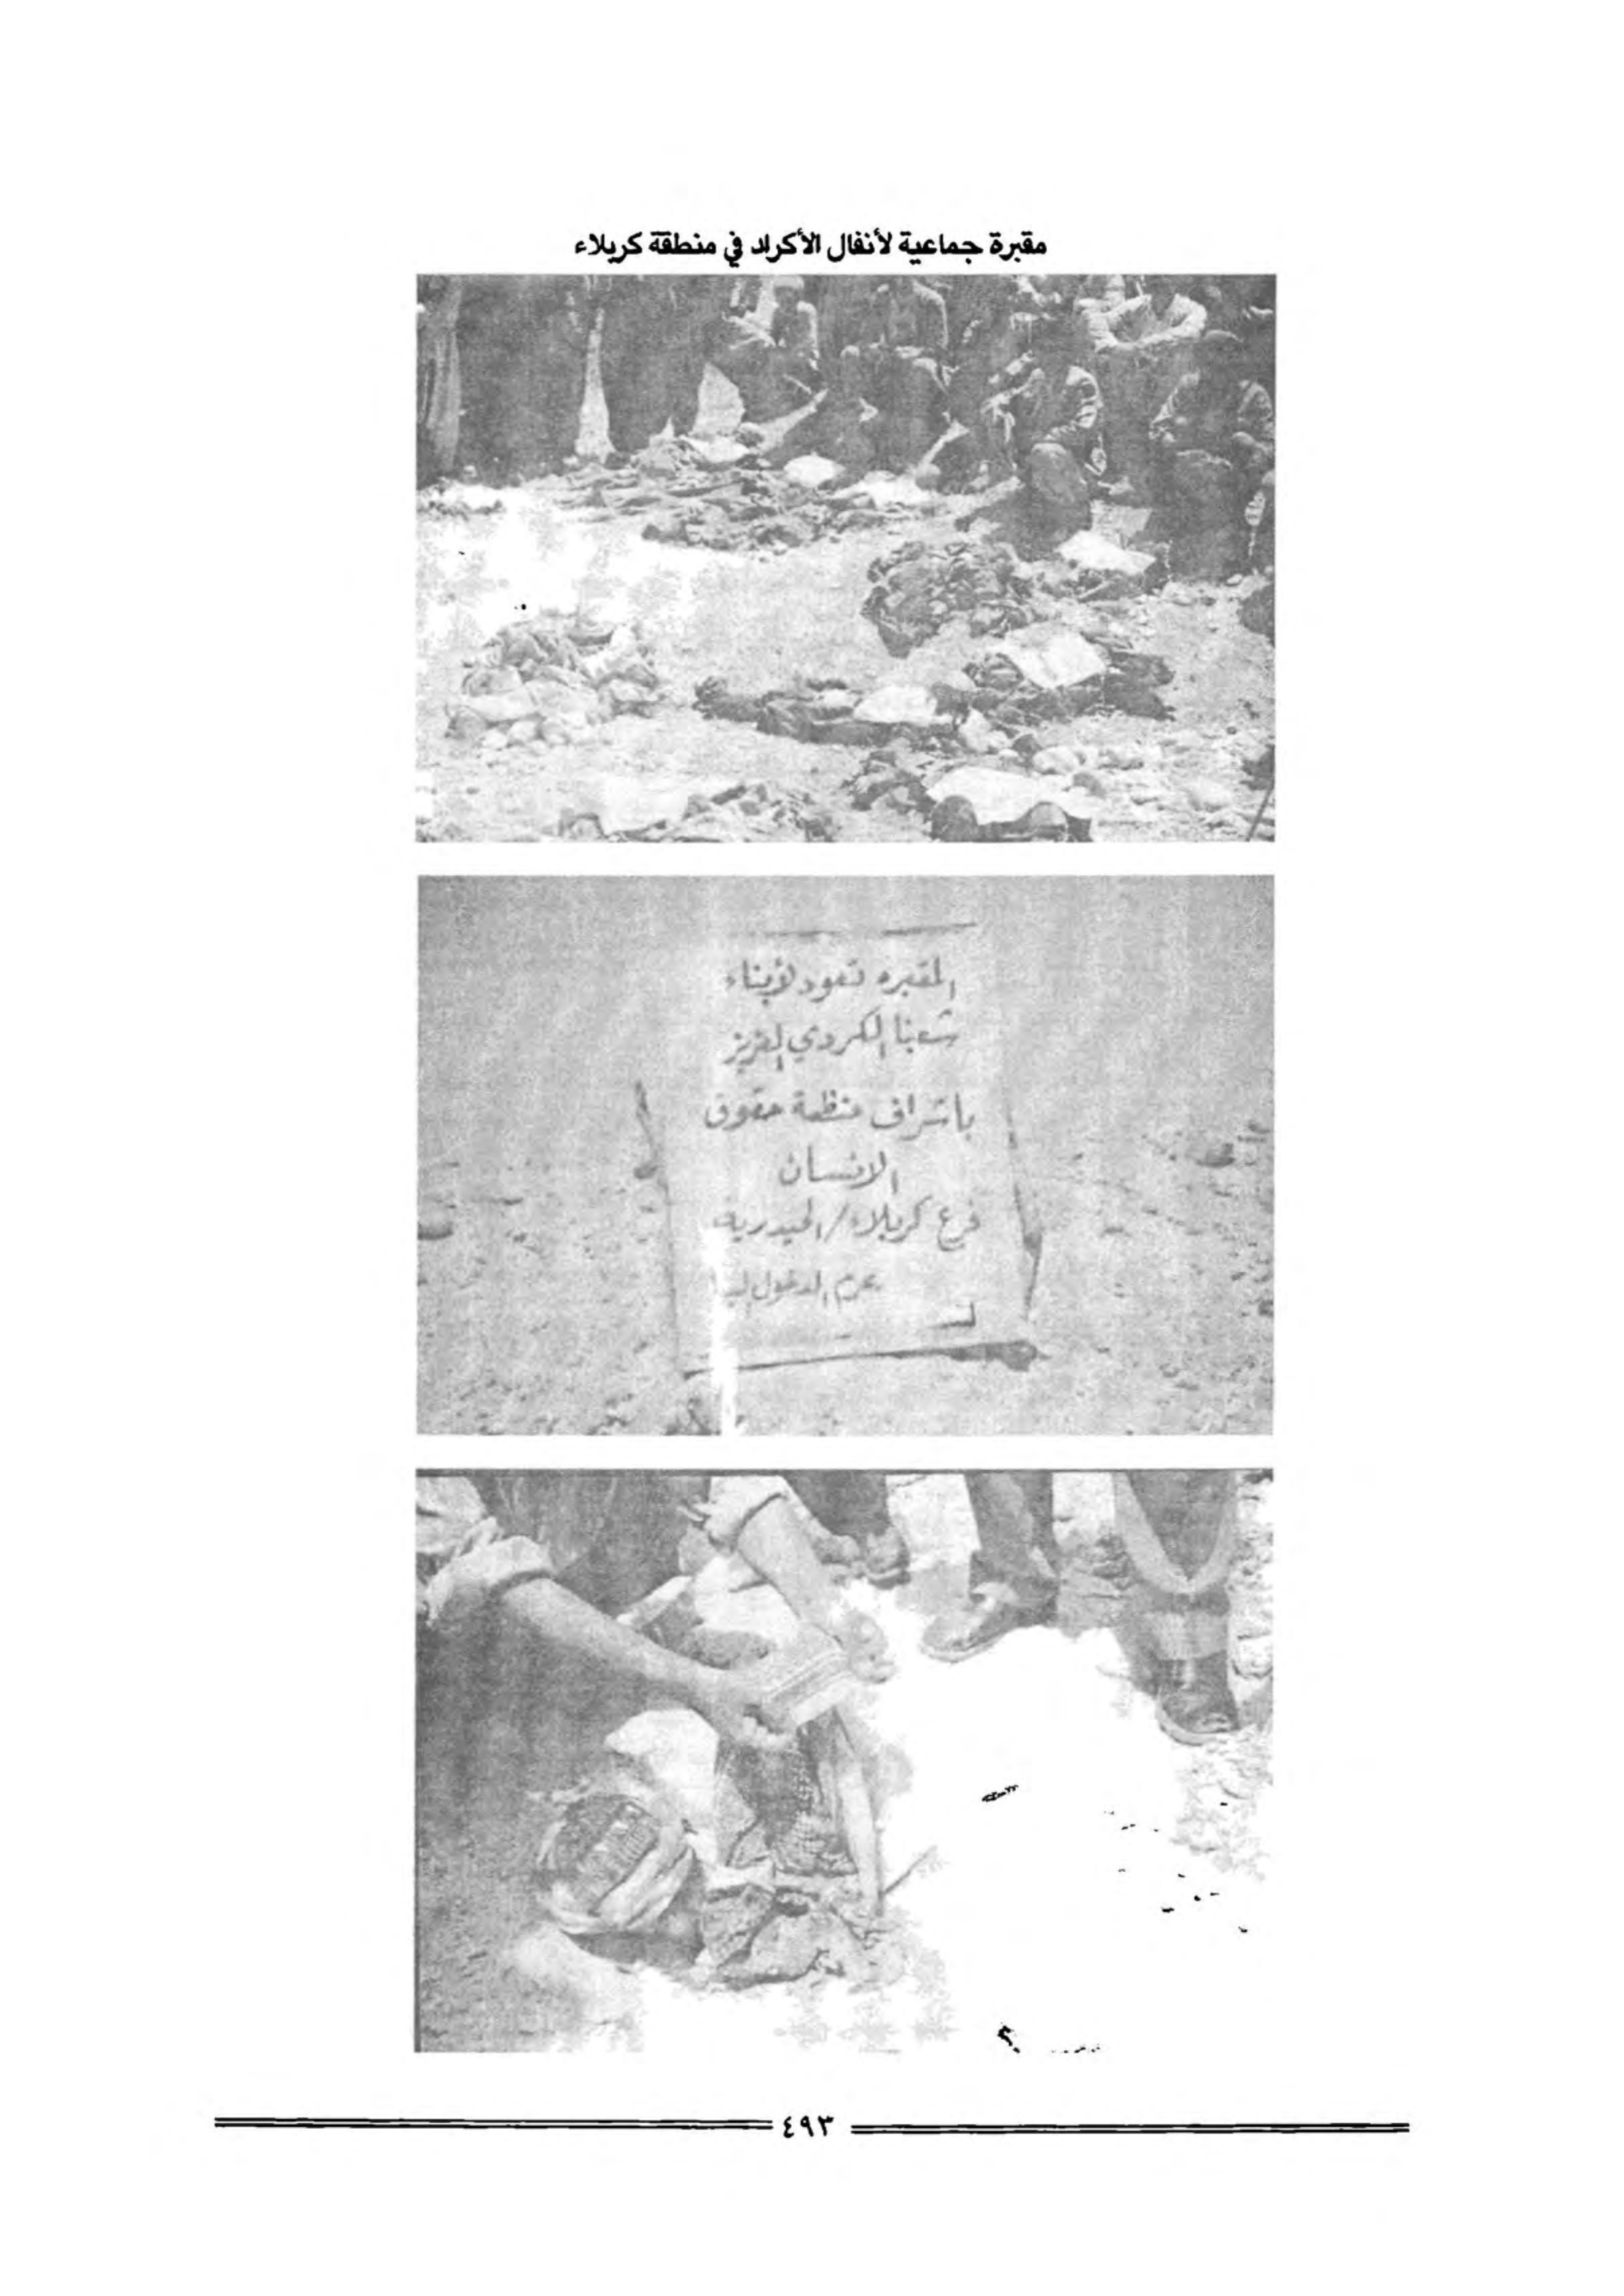 مقبرة جماعية لأنفال الأكراد في منطقة كربلاء
المقبره تعود لأبناء
شعبنا الكردي العزيز
باشراف منظمة حقوق
الانسان
فرع كربلاء/الحيدرية
يحرم الدخول
٤٩٣